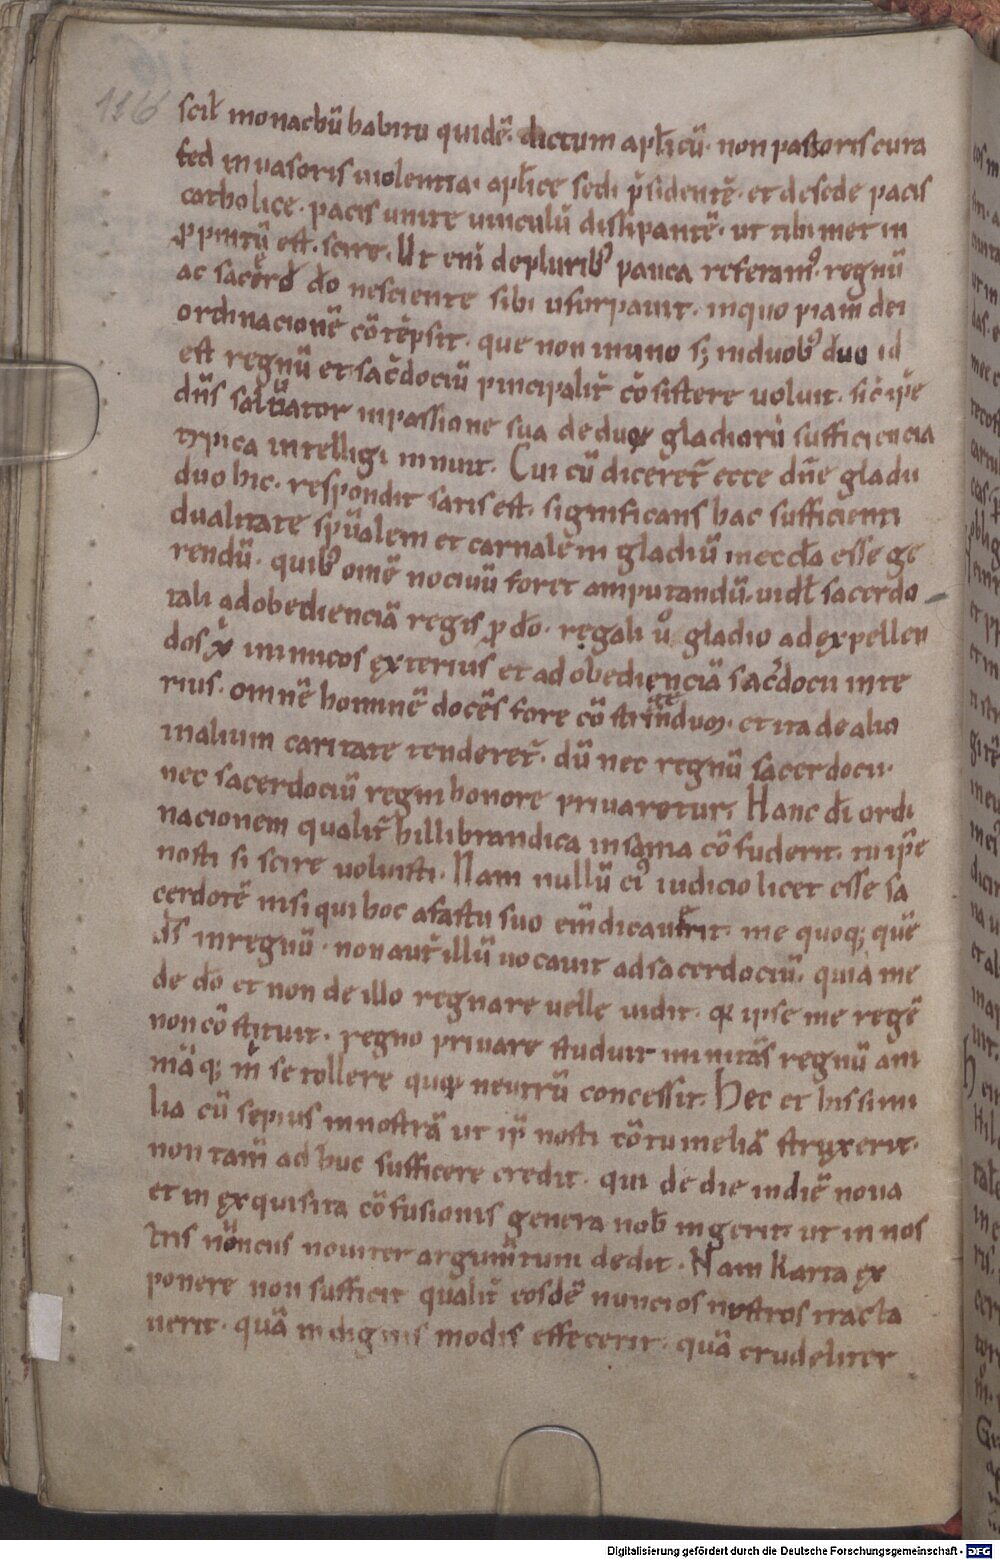 116
scił monachū habitu quidē. dictum apłicū. non pastoris cura
sed inuasoris uiolentia. apłice sedi p̄sidentē. et desede pacis
catholice. pacis unite uinculū dissipantē. ut tibimet in
pmptū est. scire. Ut eni de pluribꝰ pauca referamꝰ. regnū
ac sacerd do nesciente sibi usurpauit. inquo piam dei
ordinacionē cōtēpsit. que non inuno sꝫ induobꝰ duo id
est regnū et sac̄dociū pincipalit̄ cōsistere uoluit. sic ip̄e
dn̄s saluator inpassione sua deduoꝝ gladiorū sufficiencia
typica intelligi innuit. Cui cū diceret̄ ecce dn̄e gladii
duo hic. respondit satis est. significans hac sufficienti
dualitate spūalem et carnalē in gladiū ineccła esse ge
rendū. quibꝰ omē nociuū foret amputandū. uidł sacerdo
tali adobedienciā regis p̱ do. regali uͦ gladio adexpellen
dos xp̄i inimicos exterius et ad obedienciā sac̄docii inte
rius. omnē hominē docēs fore cōstringendum. et ita de alio
inalium caritate tenderet̄. dū nec regnū sacerdocii.
nec sacerdociū regni honore priuaretur. Hanc di ordi
nacionem qualit̄ hillibrandica insania cōfuderit. tu ip̄e
nosti si scire uoluisti. Nam nullū eiꝰ iudicio licet esse sa
cerdotē nisi qui hoc afastu suo emdicauerit. me quoqꝫ quē
ds̄ inregnū. non aut̄ illū uocauit adsacerdociū. quia me
de do et non de illo regnare uelle uidit. qꝛ ipse me regē
noncōstituit. regno priuare studuit minitās regnū ani
māqꝫ m̄ se tollere quoꝝ neutrū concessit. Hec et hissimi
lia cū sepius innostrā ut ip̄ nosti cōtumeliā struxerit.
non tam̄ ad huc sufficere credit. qui de die indiē noua
et in exquisita cōfusionis genera nob̄ ingerit. ut in nos
tris nūncius nouiter argum̄tum dedit. Nam karta ex
ponere non sufficit qualit̄ eosdē nuncios nostros tracta
uerit. quā indignis modis effecerit. quā crudeliter
Digitalisierung gefördert durch die Deutsche Forschungsgemeinschaft - DFG